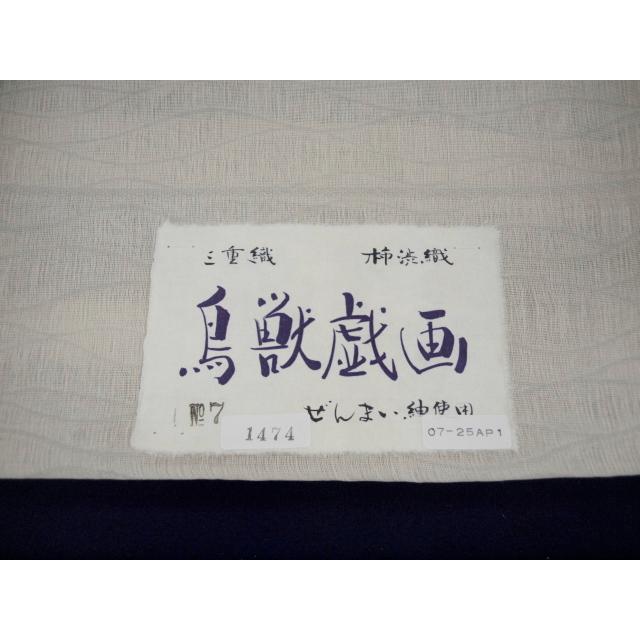 三重織 柿渋織
鳥獣戯画
No 7 ぜんまい紬使用
1474 07-25AP1